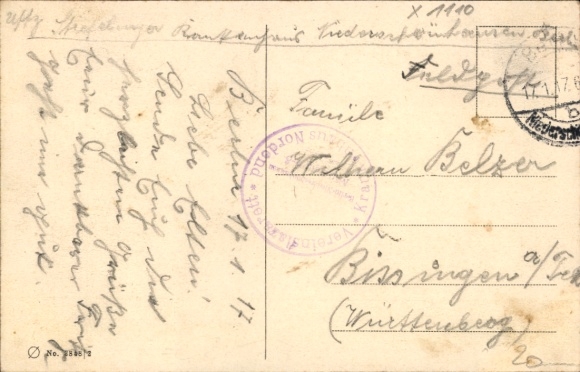 x 1110
Uffz. Krankenhaus Niederschönhausen, Berlin
Feldpost
17.1.17.
b
Niedersch
Familie
Wilhelm Belzer
Bissingen a/Teck
(Württemberg)
20
Vereinslazarett
Krankenhaus Nordend
Berlin 17. 1. 17
Liebe Eltern!
Sende Euch die
herzlichsten Grüße
Euer dankbarer
geht mir gut.
No. 2848/2